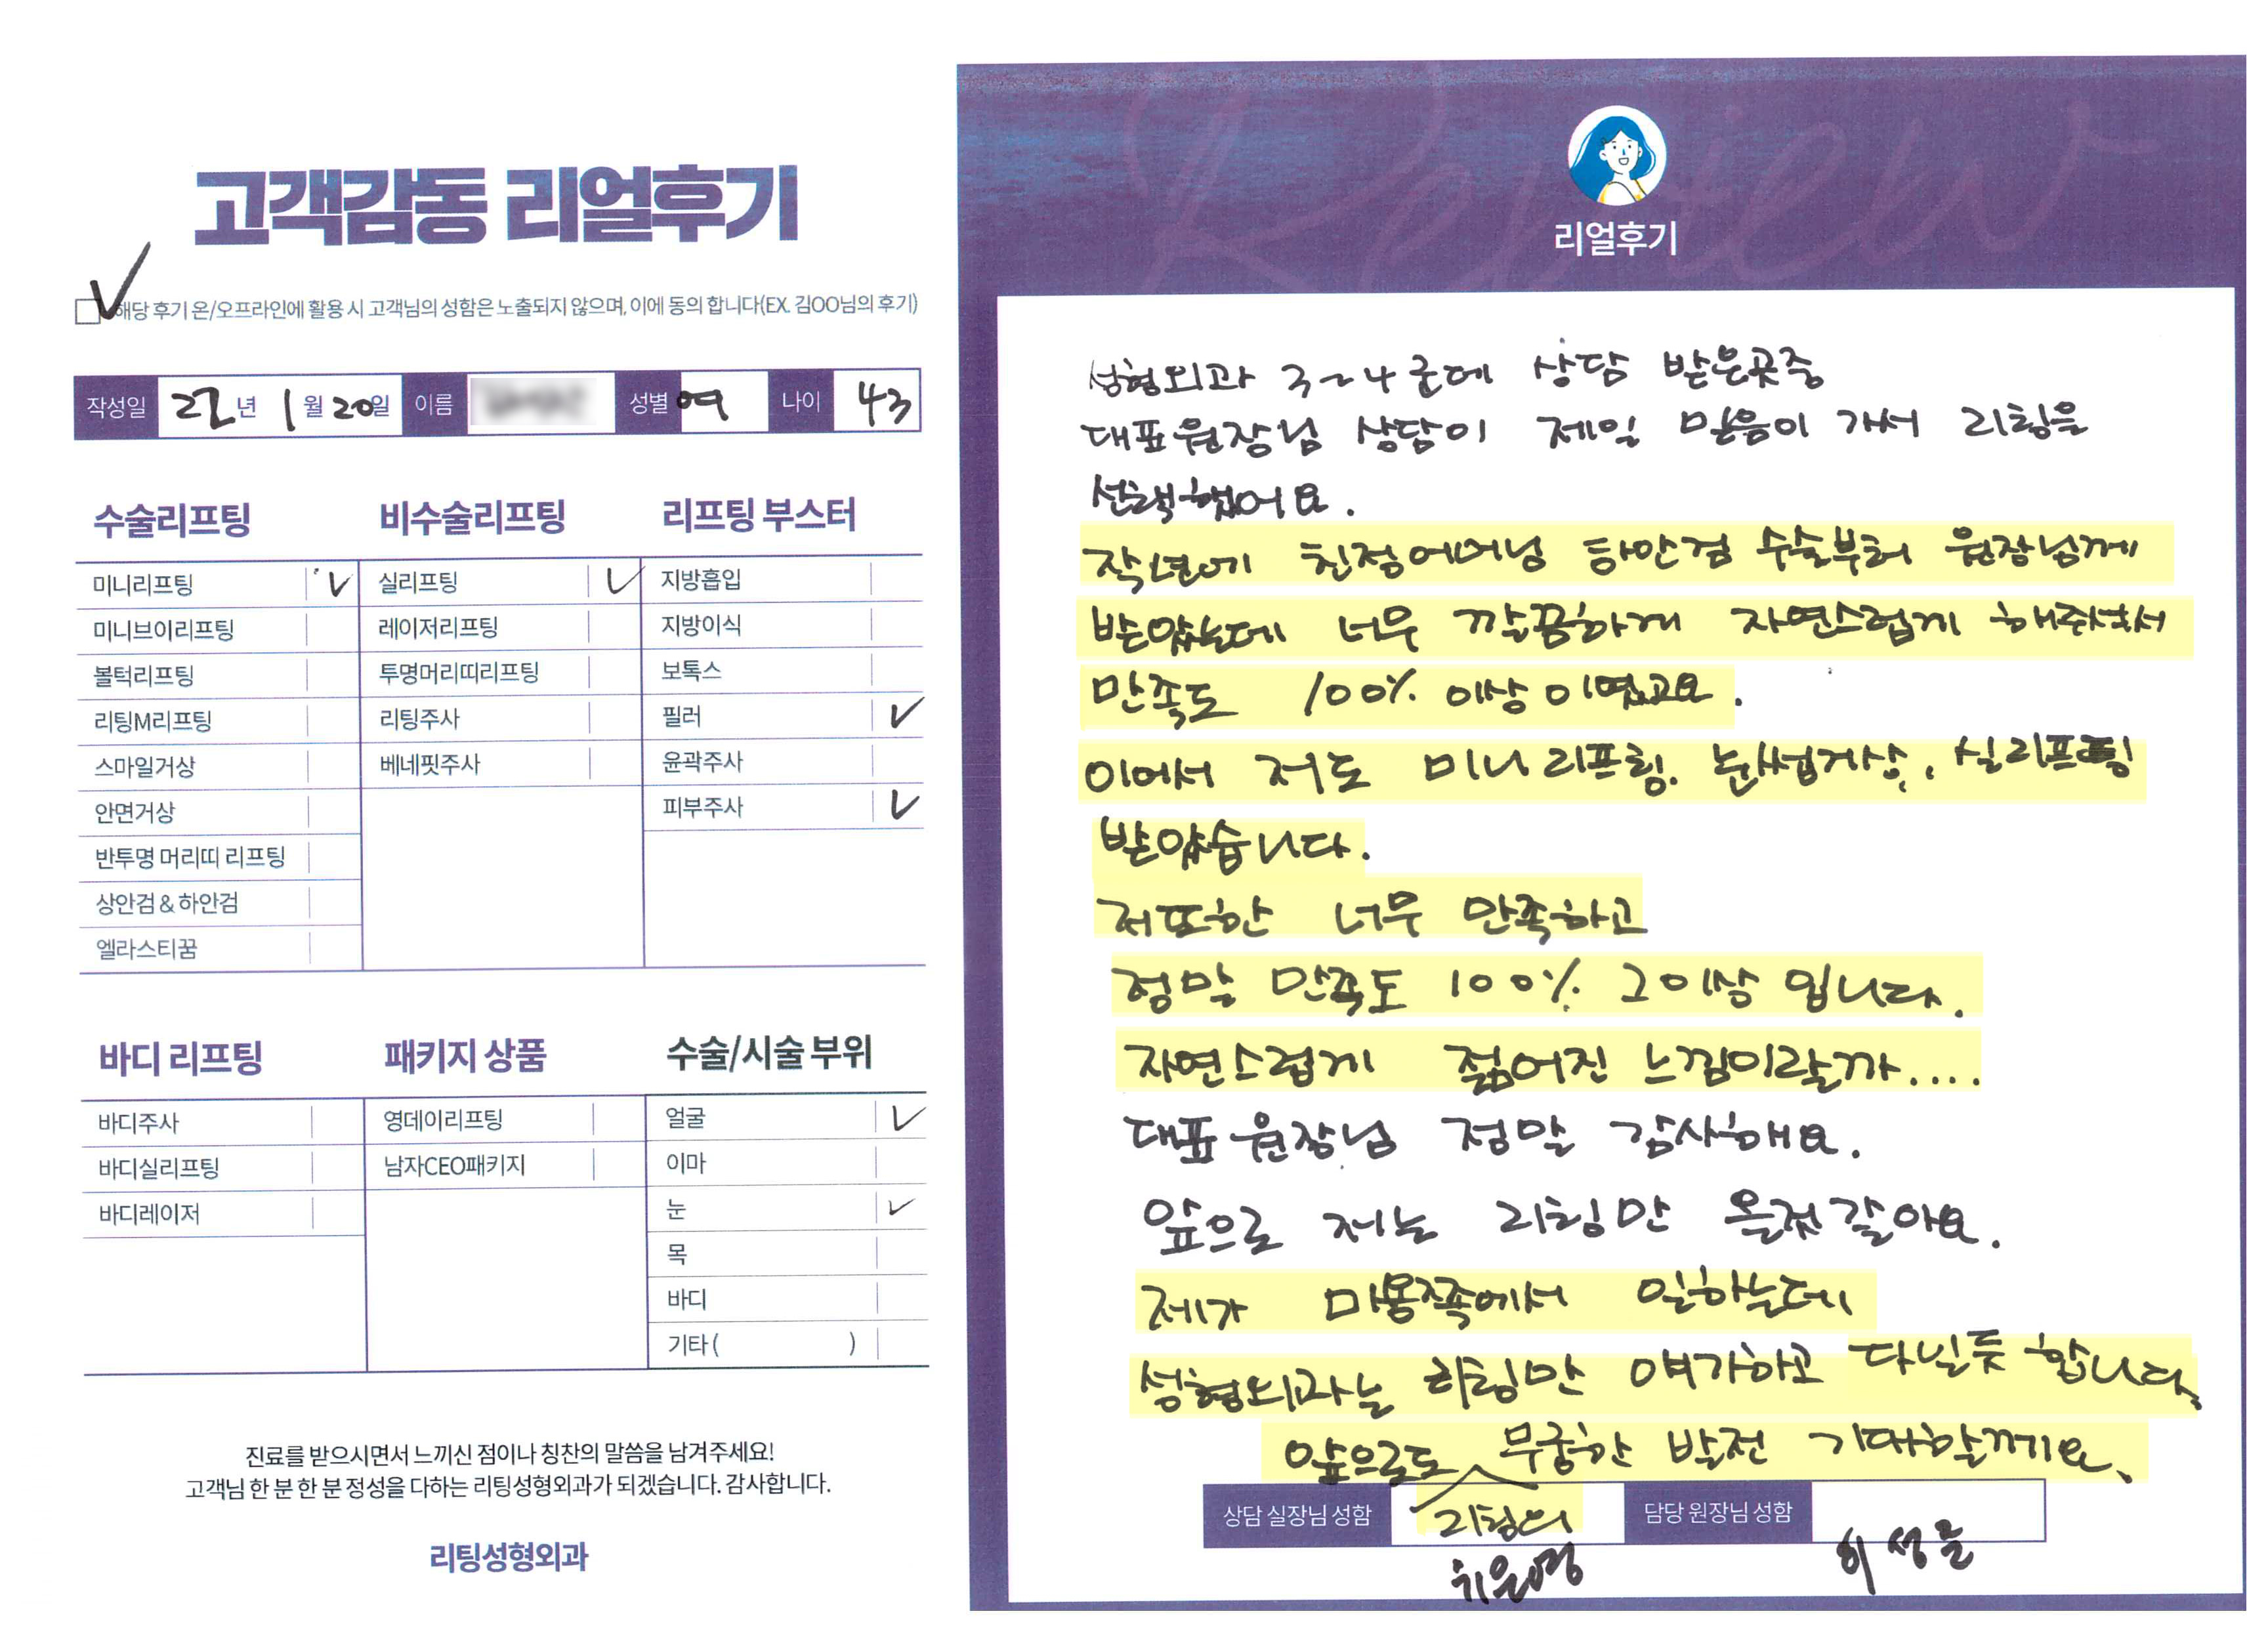 고객감동 리얼후기
해당 후기 온/오프라인에 활용 시 고객님의 성함은 노출되지 않으며, 이에 동의 합니다(EX. 김OO님의 후기)
작성일 22년 1월 20일 이름 성별 여 나이 43
수술리프팅
미니리프팅
미니브이리프팅
볼턱리프팅
리팅M리프팅
스마일거상
안면거상
반투명 머리띠 리프팅
상안검 & 하안검
엘라스티꿈
비수술리프팅
실리프팅
레이저리프팅
투명머리띠리프팅
리팅주사
베네핏주사
리프팅 부스터
지방흡입
지방이식
보톡스
필러
윤곽주사
피부주사
바디 리프팅
바디주사
바디실리프팅
바디레이저
패키지 상품
영데이리프팅
남자CEO패키지
수술/시술 부위
얼굴
이마
눈
목
바디
기타 ( )
진료를 받으시면서 느끼신 점이나 칭찬의 말씀을 남겨주세요!
고객님 한 분 한 분 정성을 다하는 리팅성형외과가 되겠습니다. 감사합니다.
리팅성형외과
Review
리얼후기
성형외과 3~4군데 상담 받은곳중
대표원장님 상담이 제일 믿음이 가서 리팅을
선택했어요.
작년에 친정어머님 하안검 수술부터 원장님께
받았는데 너무 깔끔하게 자연스럽게 해주셔서
만족도 100% 이상이였고요.
이에서 저도 미니리프팅. 눈썹거상. 실리프팅
받았습니다.
저또한 너무 만족하고
정말 만족도 100% 그이상 입니다.
자연스럽게 젊어진 느낌이랄까....
대표원장님 정말 감사해요.
앞으로 저는 리팅만 올것같아요.
제가 미용쪽에서 일하는데
성형외과는 리팅만 얘기하고 다닐듯 합니다.
앞으로도 무궁한 발전 기대할께요.
상담 실장님 성함 리팅의 담당 원장님 성함